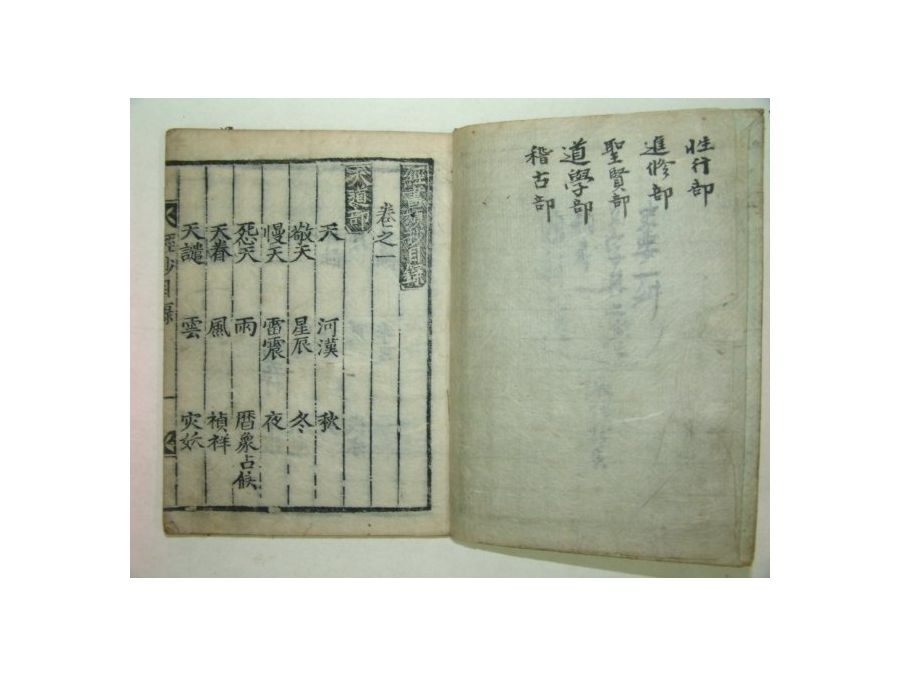 性行部
進修部
聖賢部
道學部
稽古部
經書類抄目錄
卷之一
天道部
天 河漢 秋
敬天 星辰 冬
慢天 雷震 夜
怨天 雨 曆象占候
天眷 風 禎祥
天譴 雲 灾妖
經抄目錄